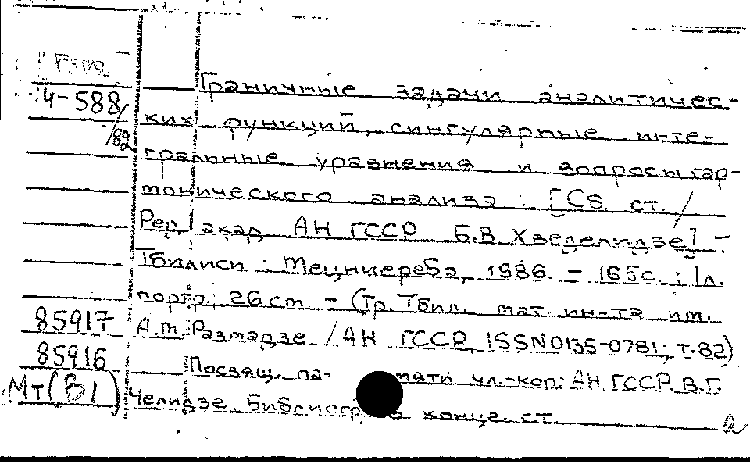 4-588
/82
Граничные задачи аналитичес-
ких функций, сингулярные инте-
гральные уравнения и вопросы гар-
монического анализа : [Сб. ст. /
Ред. акад. АН ГССР Б.В. Хведелидзе] -
Тбилиси : Мецниереба, 1986. - 165с. : 1л.
портр; 26см - (Тр. Тбил. мат. ин-та им.
85917 А.М. Размадзе / АН ГССР, ISSN 0135-0781; т.82)
85916 Посвящ. па- мяти чл.-кор. АН ГССР В.Г.
Мт(В1) Челидзе. Библиогр. в конце ст.